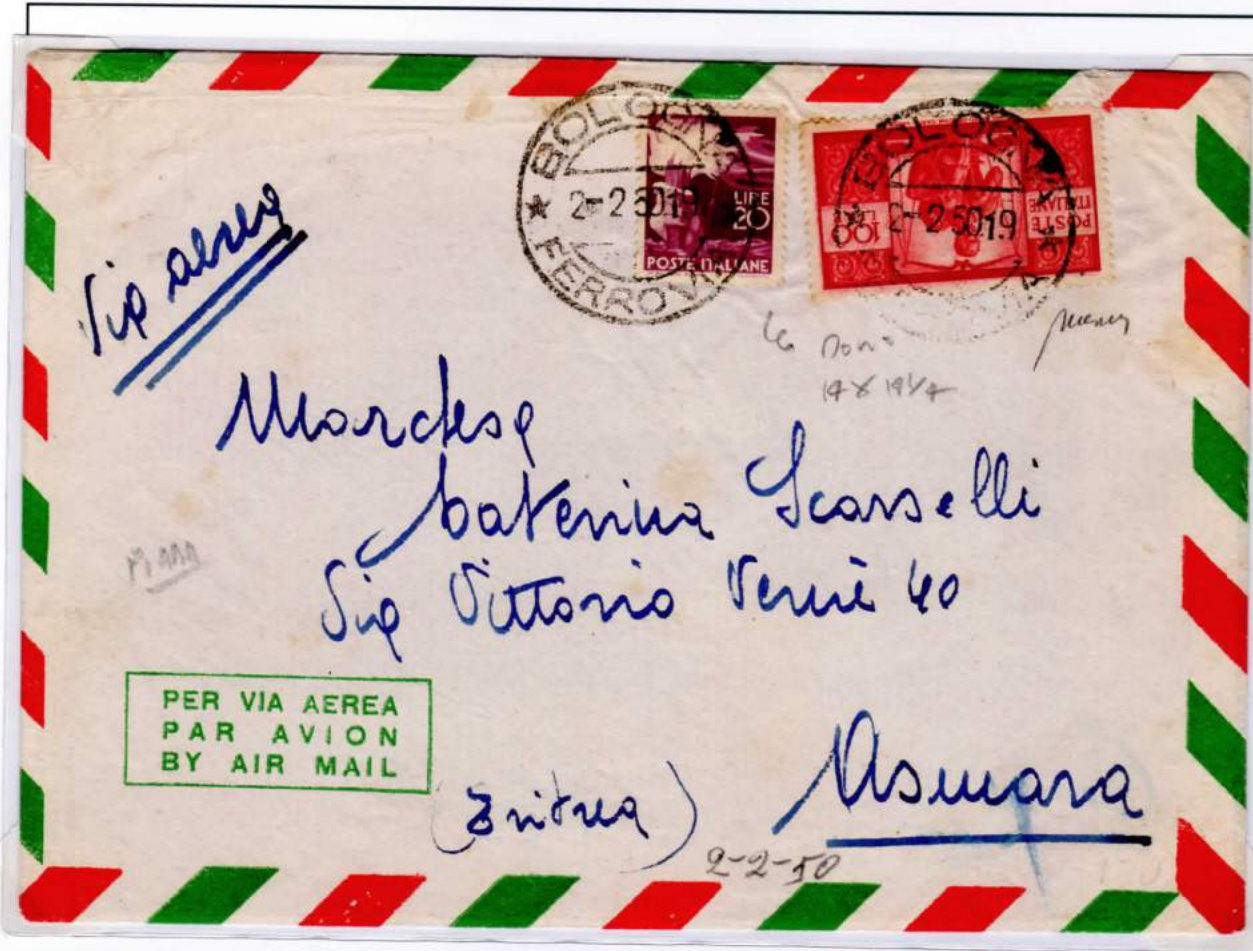 BOLOGNA
2-2 50.19
FERROVIA
LIRE
20
POSTE ITALIANE
BOLOGNA
2-2 50.19
100
LIRE
POSTE
ITALIANE
Via aerea
Marchesa
Caterina Scarselli
Via Vittorio Veneto 40
PER VIA AEREA
PAR AVION
BY AIR MAIL
(Eritrea)
Asmara
2-2-50